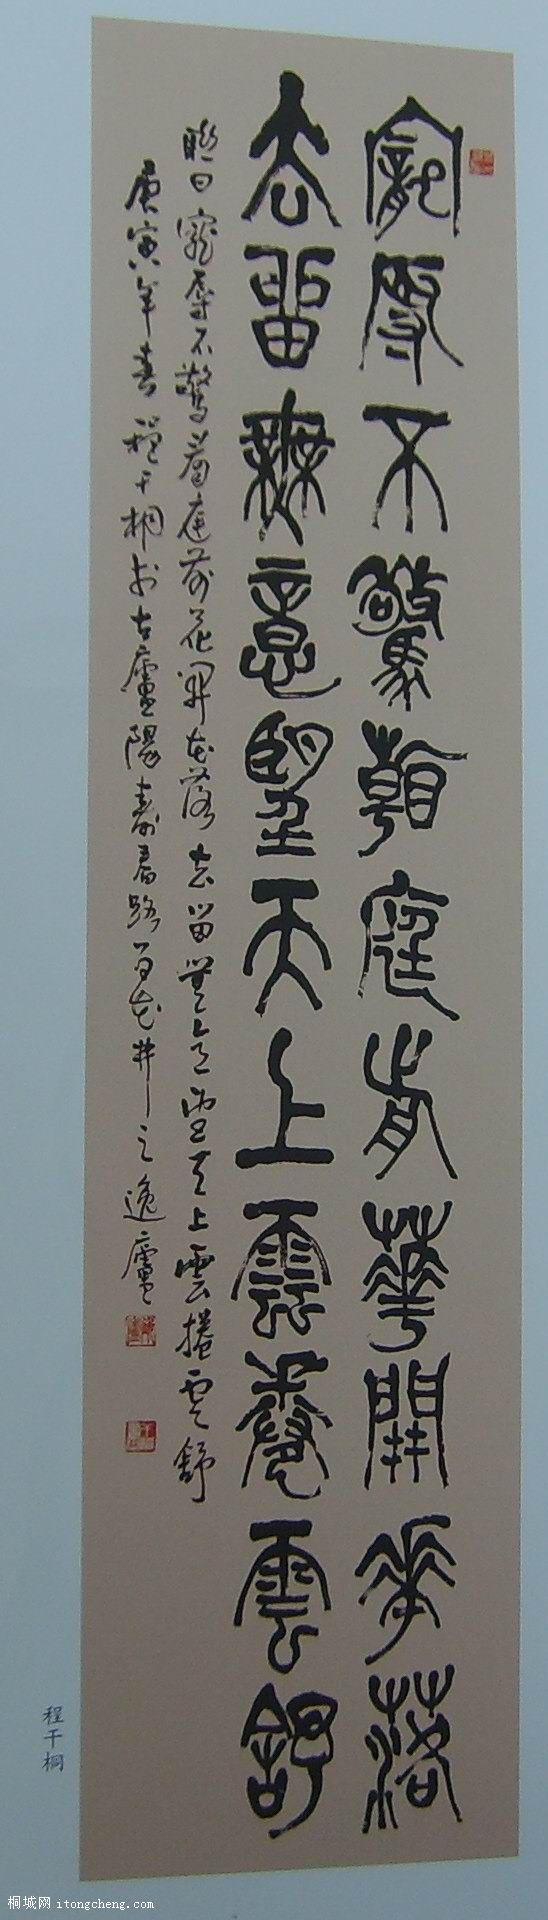 寵辱不驚看庭前華開花落
去留無意望天上雲卷雲舒
聯曰寵辱不驚看庭前花開花落去留無意望天上雲捲雲舒
庚寅年春程干桐於古廬陽壽春路百花井之逸廬
程干桐
桐城网 itongcheng.com